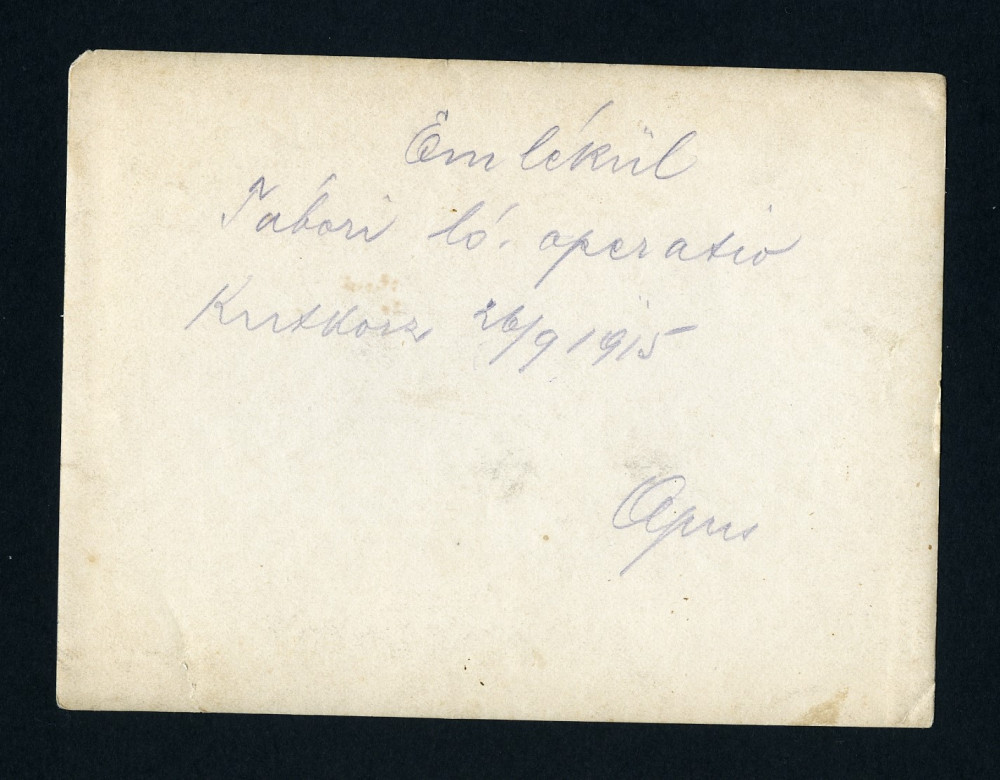 Emlékül
Tábori ló. operatio
Kutkorz 26/9 1915
Apus